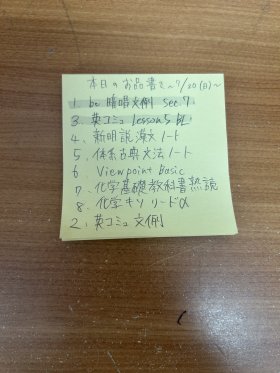 本日のお品書き〜7/20(日)〜
1. be 暗唱文例 Sec.7
3. 英コミュ lesson5 別
4. 新明説漢文ノート
5. 体系古典文法ノート
6. Viewpoint Basic
7. 化学基礎教科書熟読
8. 化学キソ リードα
2. 英コミュ 文例